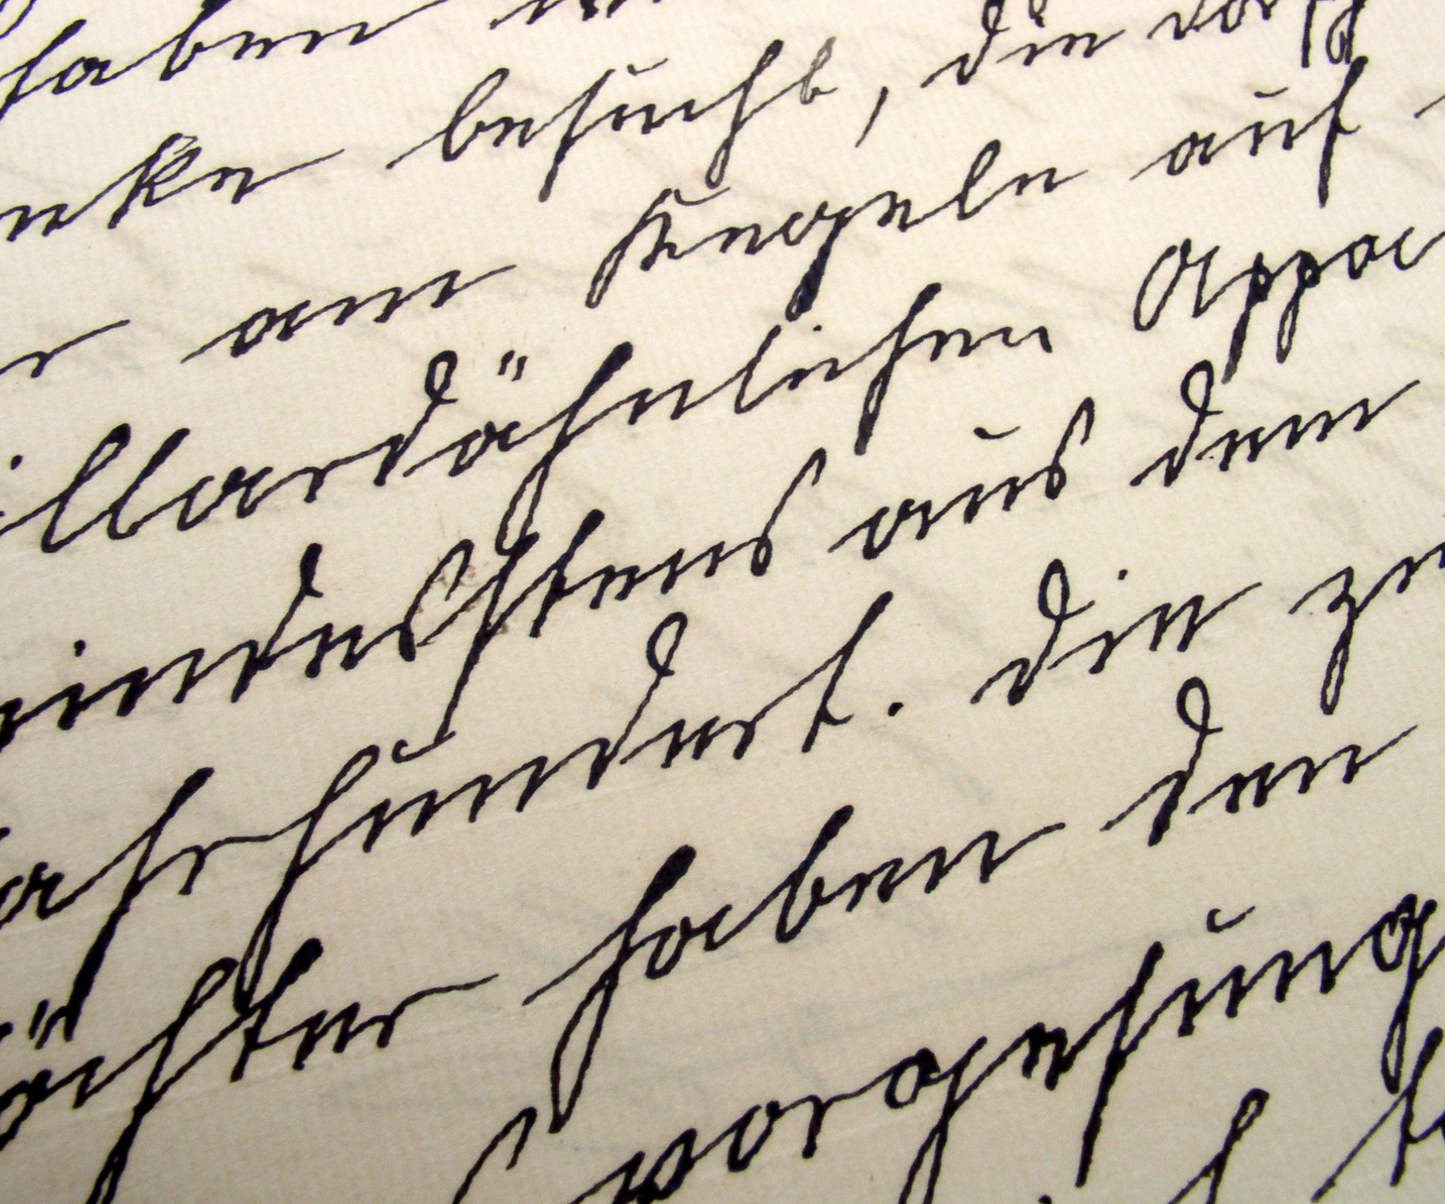 haben
nke besucht, die
r am Kegeln auf
illardähnlichen Appa
indesstens aus dem
ahrhundert. Die zw
ächter haben den
vorgesung